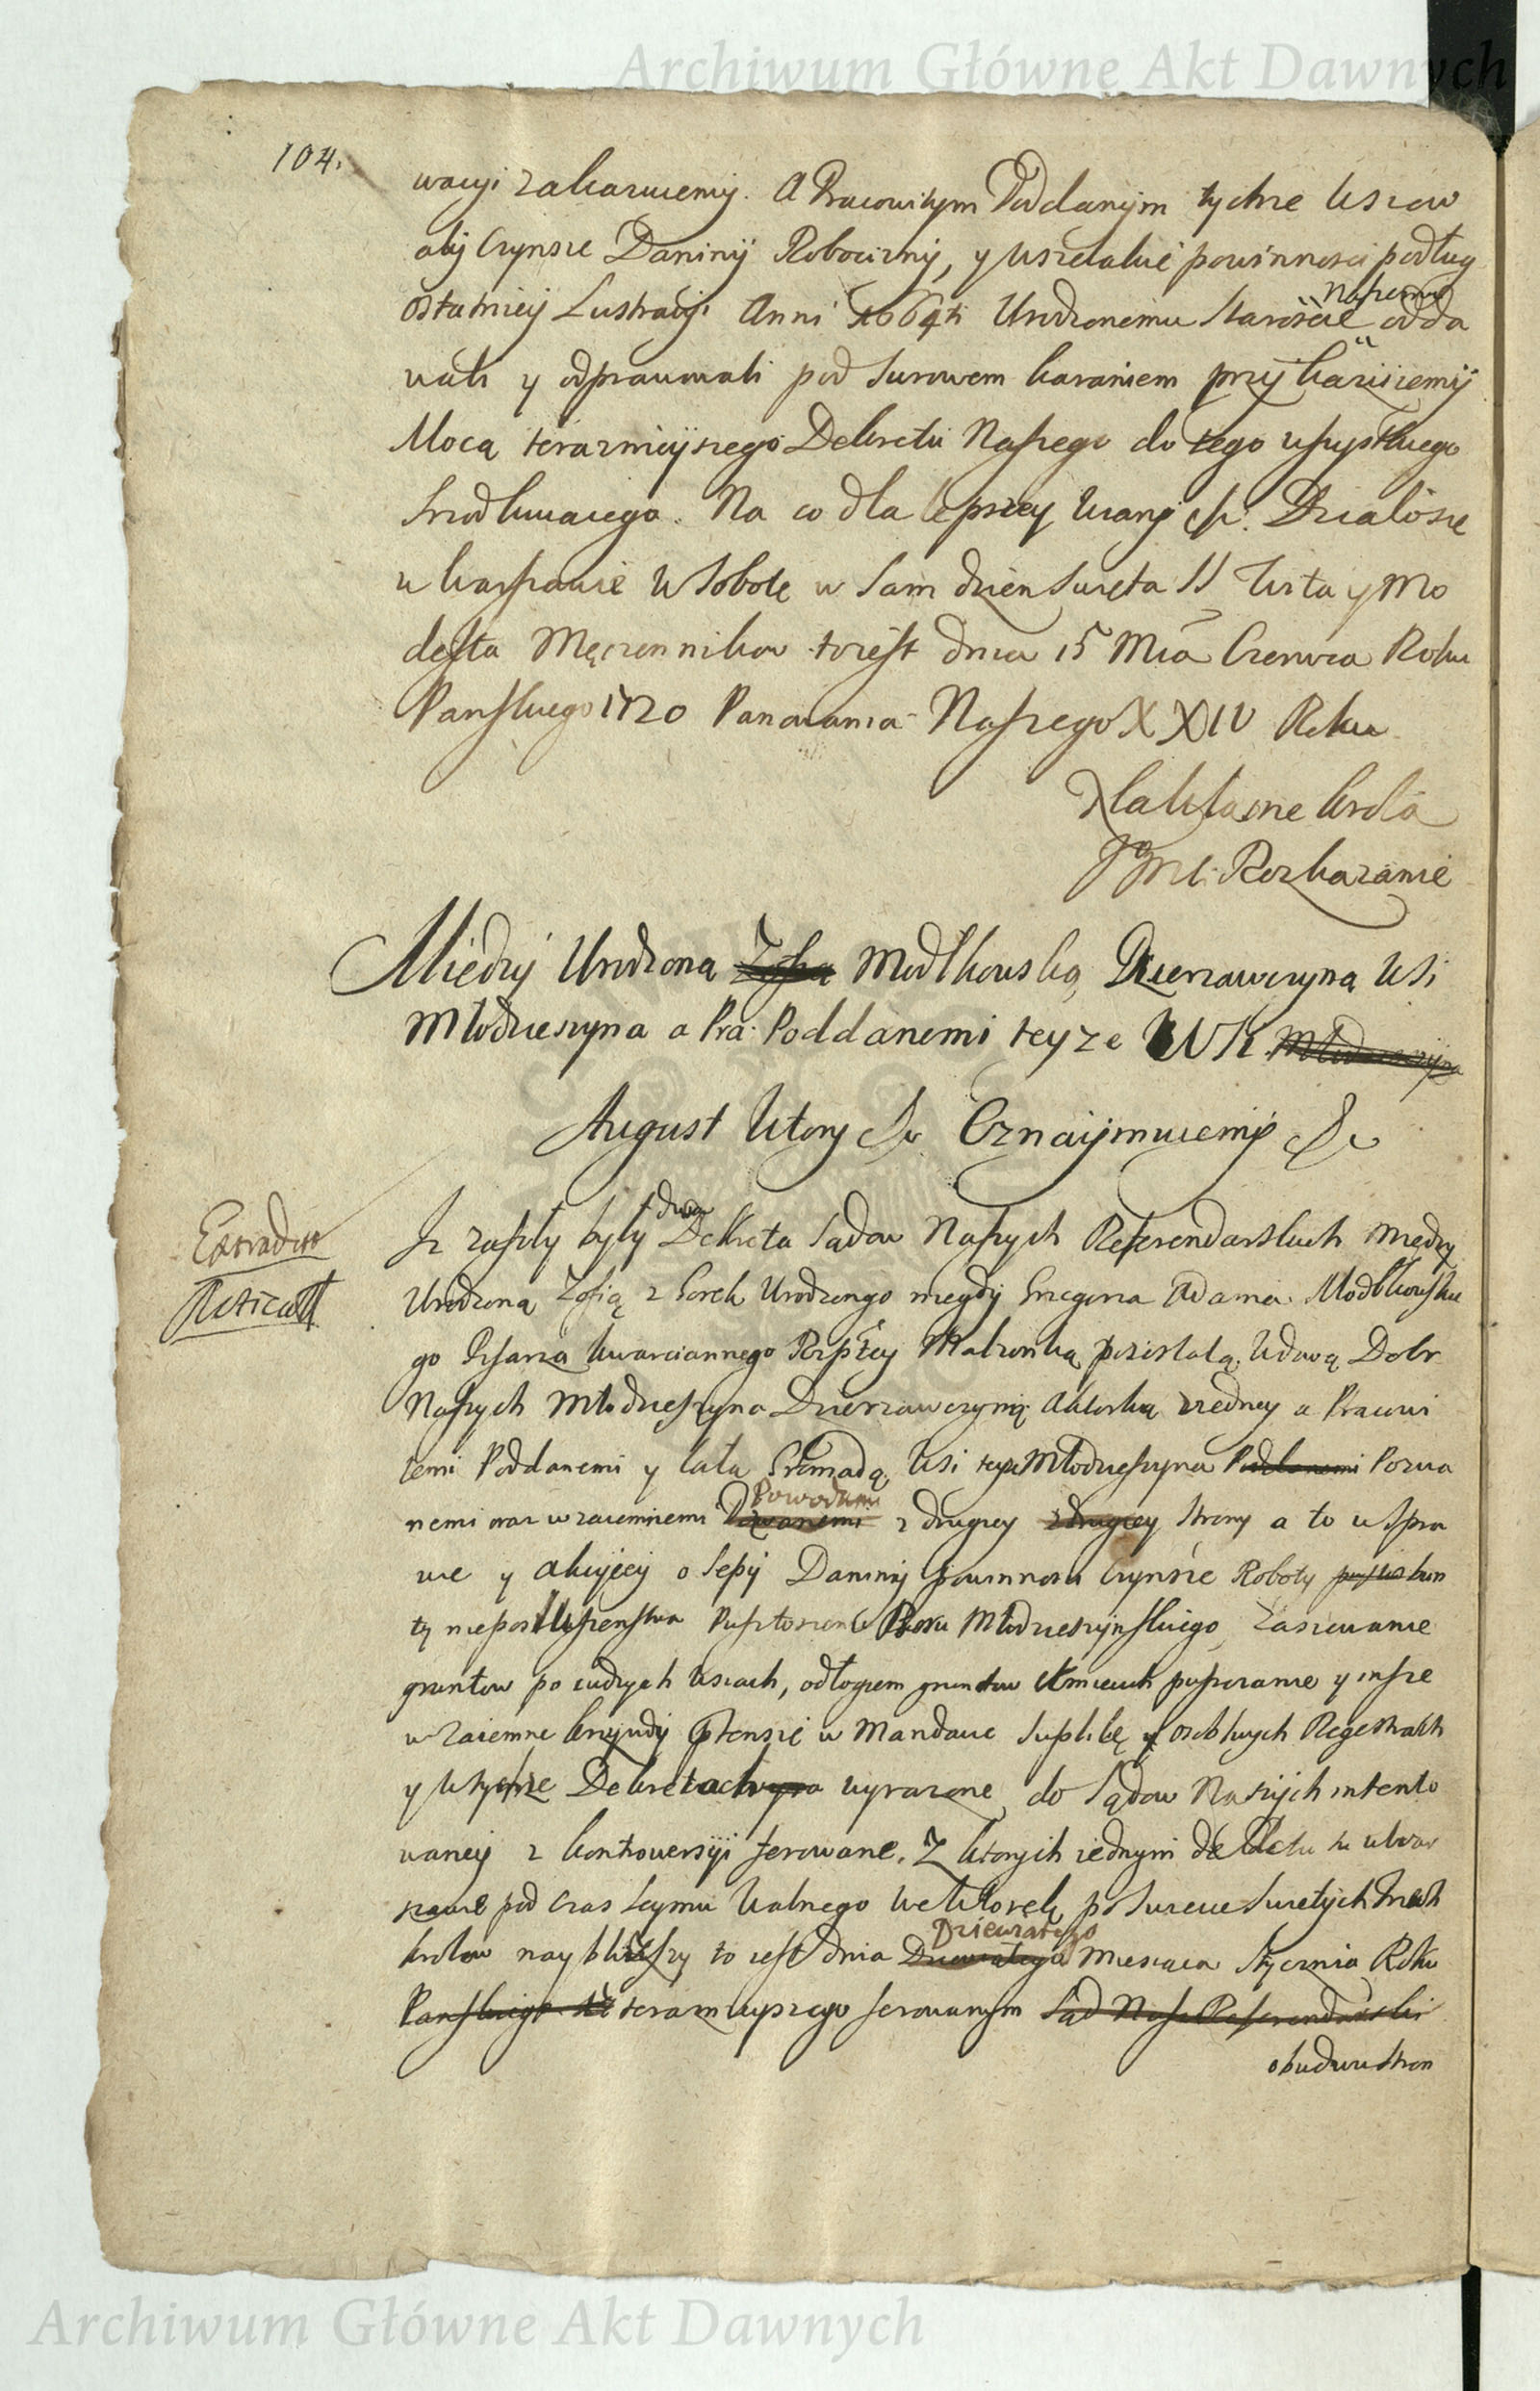 Archiwum Główne Akt Dawnych
104.
wacyi zakazuiemy. A Pracowitym Poddanym tychże Wsiow
aby Czynsze Daniny Robocizny, y wszelakie powinnosci podług
naszemu
ostatniey Lustracyi Anni 1664ti Urodzonemu Staroscie odda
wali y odprawowali pod surowem karaniem przykazuiemy
Mocą teraznieyszego Dekretu Naszego do tego wszystkiego
Na co dla lepszey Wiary &c. Działo się
w Warszawie w Sobotę w sam dzien Swięta SS Wita y Mo
desta Męczennikow to iest dnia 15 Mca Czerwca Roku
Panskiego 1720 Panowania Naszego XXIV Roku
Na własne Krola
Jgo Mci Rozkazanie
Miedzy Urodzoną Zofią Modlkowską Dzierzawczyną Wsi
Młodzieszyna a Pra: Poddanemi teyze Wsi Młodzieszyna
August Wtory &c Oznaymuiemy &c
Extradit
dwa
Iz zaszły były Dekreta Sądow Naszych Referendarskich między
Urodzoną Zofią z Gorek Urodzonego niegdy Grzegorza Adama Modlkowskie
go Pisarza kwarciannego Rzpltey Małżonką pozostałą Wdową Dobr
Naszych Młodzieszyna Dzierzawczynią Aktorką z iedney a Pracowi
temi Poddanemi y całą Gromadą Wsi teyze Młodzieszyna Poddanemi Pozwa
Powodami
nemi oraz wzaiemnemi Pozwanemi z drugiey z drugiey strony a to w spra
wie y akcyiey o Sepy Daniny powinnosci Czynsze Roboty
ty nieposłuszenstwa Pustoszenie Boru Młodzieszynskiego, Zasiewanie
gruntow po cudzych Wsiach, odłogiem gruntow Kmiecich puszczanie y insze
wzaiemne krzywdy Ptensie w Mandacie Suplikę y osobliwych Regestrach
y Wtychze Dekretach wyrażone do Sądow Naszych intento
waney z kontrowersyi ferowane. Z ktorych iednym
pod czas Seymu Walnego we Wtorek po Swięcie Swiętych Trzech
Dziewiątego
krolow naybliższy to iest dnia Dziewiątego Miesiąca Stycznia Roku
Panskiego teraznieyszego ferowanym Sąd Nasz Referendarski
obudwu stron
Archiwum Główne Akt Dawnych